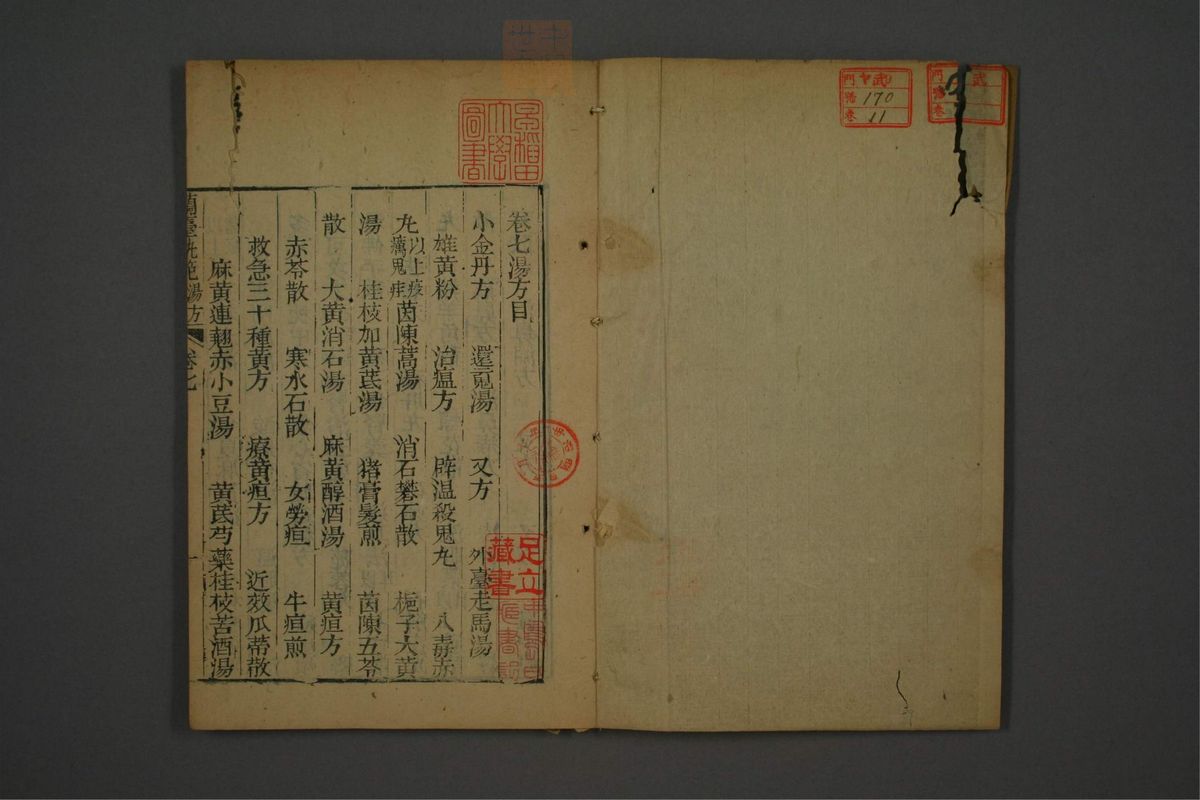 卷七湯方目
小金丹方　還䰟湯　又方　外臺走馬湯
雄黃粉　治瘟方　辟温殺鬼丸　八毒赤
丸以上疫癘鬼疰　茵陳蒿湯　消石礬石散　梔子大黃
湯　桂枝加黃芪湯　猪膏髮煎　茵陳五苓
散　大黃消石湯　麻黃醇酒湯　黃疸方
赤苓散　寒水石散　女勞疸　牛疸煎
救急三十種黃方　療黃疸方　近效瓜蒂散
麻黃連翹赤小豆湯　黃芪芍藥桂枝苦酒湯
蘭臺軌範湯方　卷七　一
早稻田大學圖書
足立藏書
門 ヤ武9
號 170
卷 11
門 武
號
卷